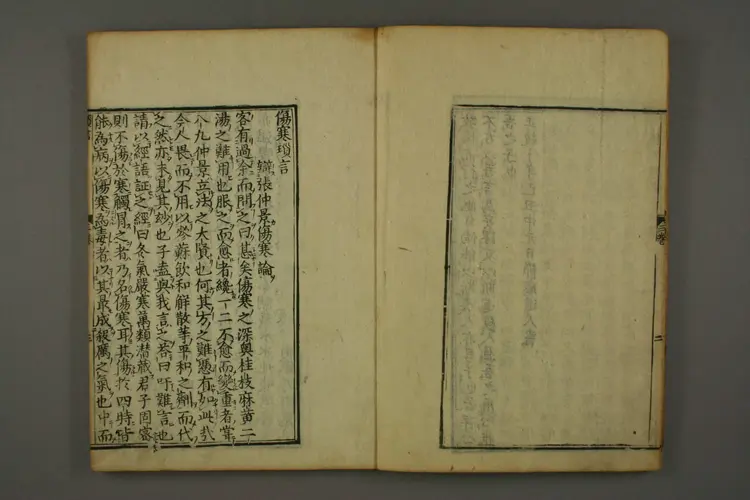 傷寒瑣言
辯張仲景傷寒論
客有過余而問之曰甚矣傷寒之深奧桂枝麻黄二
湯之難用也服之而愈者纔一二不愈而變重者嘗
八九仲景立法之大賢也何其方之難慿有如此哉
今人畏而不用以參蘇飲和解散等平和之劑而代
之然亦未見其妙也子盍與我言之荅曰吁難言也
請以經語証之經曰冬氣嚴寒萬類潜藏君子固密
則不傷於寒觸冒之者乃名傷寒耳其傷於四時皆
能為病以傷寒為毒者以其最成殺厲之氣也中而
二